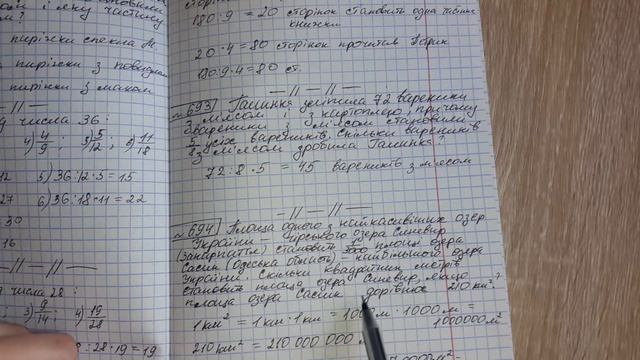 овими
і яку частину
м?
пиріжки спекла М.
пиріжки з повидлом
пиріжки з маком
— // —
числа 36:
4) 4/9 ; 5) 5/12 ; 6) 11/18
12 5) 36:12·5=15
27 6) 36:18·11=22
30
16
— // — // —
числа 28:
3) 9/14 ; 4) 19/28
:28·19=19
180:9=20 сторінок становить одна частина
книжки
20·4=80 сторінок прочитав
180:9·4=80 ст.
— // — // —
№693 Галинка зліпила 72 вареники
з м'ясом і з картоплею, причому
вареники з м'ясом становили
5/8 усіх вареників. Скільки вареників
з м'ясом зробила Галинка?
72:8·5=45 вареників з м'ясом
— // — // —
№694 Площа одного з найкрасивіших озер
України — гірського озера Синевир
(Закарпаття) становить площі озера
Сасик (Одеська область) — найбільшого озера
України. Скільки квадратних метрів
становить площа озера Синевир, якщо
площа озера Сасик дорівнює 210 км²?
1 км² = 1 км·1 км = 1000 м·1000 м =
1000000 м²
210 км² = 210 000 000